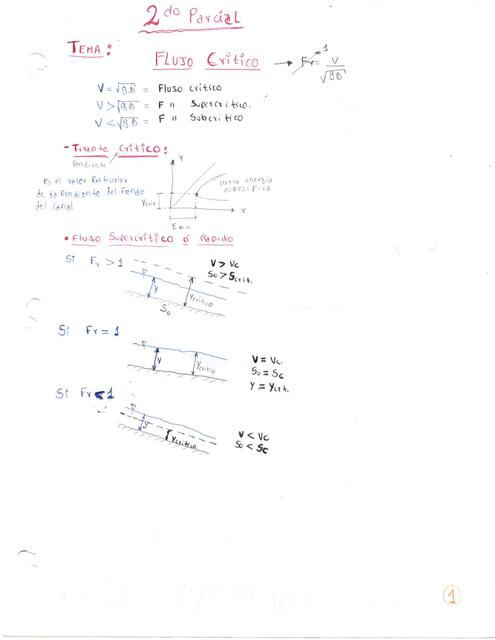 2do Parcial
TEMA: Fluso Critico → Fr = V / √gD 1
V = √gD = Fluso critico
V > √gD = F " Supercritico.
V < √gD = F " Subcritico
- Tirante Critico:
Pendiente
Es el valor Particular
de la Pendiente del Fondo
del canal
Y
Ycrit
curva energia
especifica
X
E min
• Fluso Supercritico o Rapido
Si Fr > 1
V > Vc
So > Scrit.
y
Ycritico
So
Si Fr = 1
y
Ycritico
V = Vc.
So = Sc
Y = Ycrit.
Si Fr < 1
y
Ycritico
V < Vc
So < Sc
1